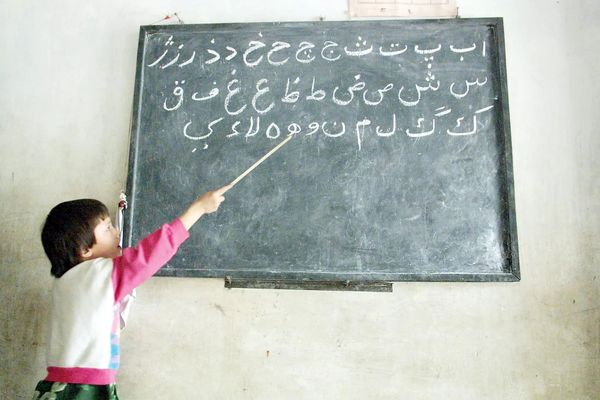 ا ب پ ت ث ج چ ح خ د ذ ر ز ژ
س ش ص ض ط ظ ع غ ف ق
ک گ ل م ن و ھ ه لا ء ي